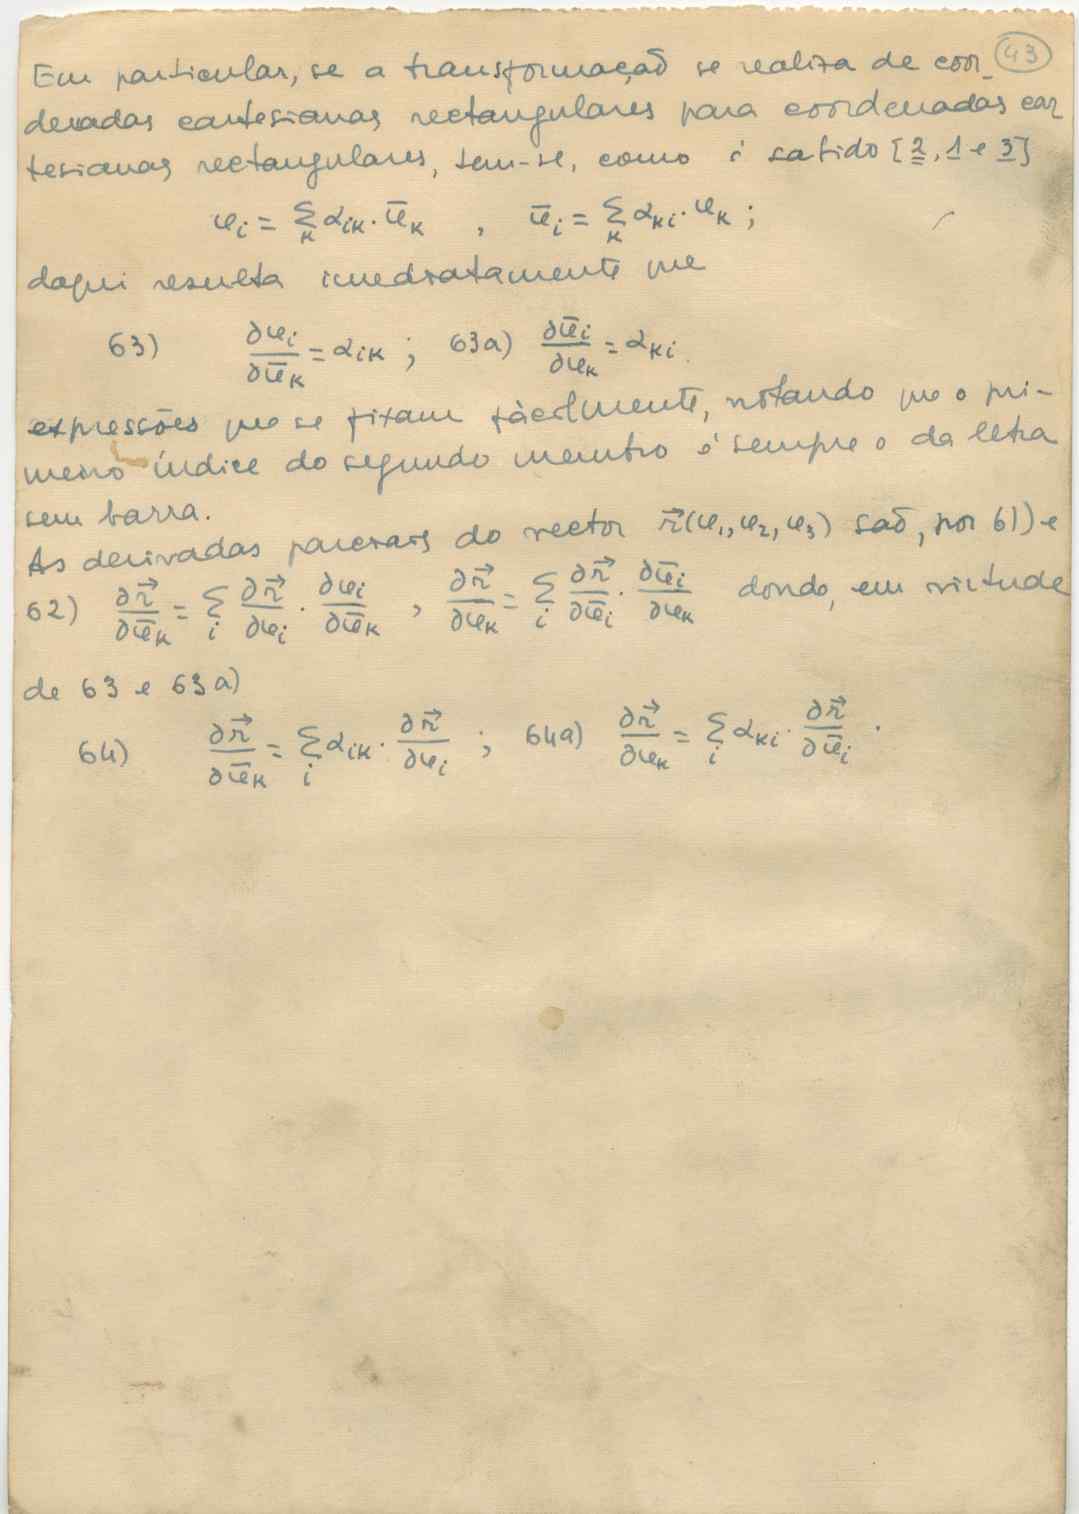 43
Em particular, se a transformação se realiza de coor-
denadas cartesianas rectangulares para coordenadas car
tesianas rectangulares, tem-se, como é sabido [2, 1 e 3]
u_i = Σ_k α_ik · ū_k , ū_i = Σ_k α_ki · u_k ;
daqui resulta imediatamente que
63) ∂u_i/∂ū_k = α_ik ; 63a) ∂ū_i/∂u_k = α_ki .
expressões que se fixam fàcilmente, notando que o pri-
meiro índice do segundo membro é sempre o da letra
sem barra.
As derivadas parciais do vector r⃗(u_1, u_2, u_3) são, por 61) e
62) ∂r⃗/∂ū_k = Σ_i ∂r⃗/∂u_i · ∂u_i/∂ū_k , ∂r⃗/∂u_k = Σ_i ∂r⃗/∂ū_i · ∂ū_i/∂u_k dondo, em virtude
de 63 e 63a)
64) ∂r⃗/∂ū_k = Σ_i α_ik · ∂r⃗/∂u_i ; 64a) ∂r⃗/∂u_k = Σ_i α_ki · ∂r⃗/∂ū_i .